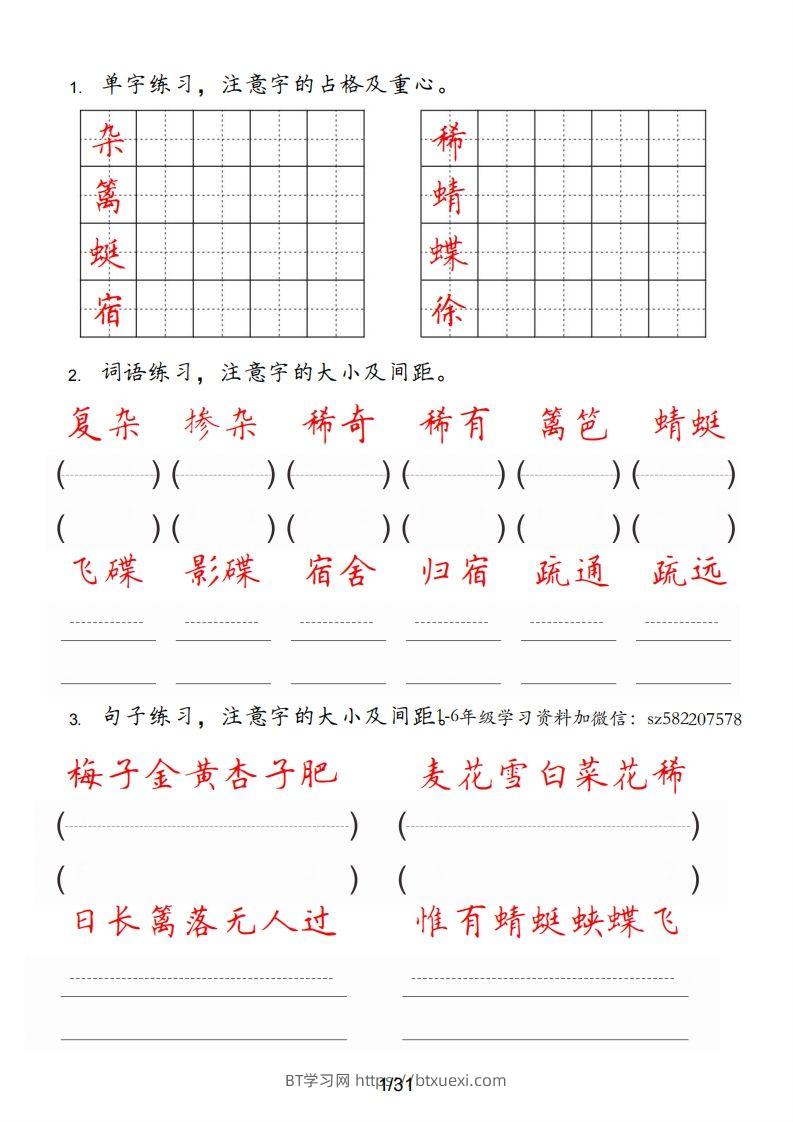 1. 单字练习，注意字的占格及重心。
杂 稀
篱 蜻
蜓 蝶
宿 徐
2. 词语练习，注意字的大小及间距。
复杂 掺杂 稀奇 稀有 篱笆 蜻蜓
( ) ( ) ( ) ( ) ( ) ( )
( ) ( ) ( ) ( ) ( ) ( )
飞碟 影碟 宿舍 归宿 疏通 疏远
3. 句子练习，注意字的大小及间距。1-6年级学习资料加微信：sz582207578
梅子金黄杏子肥 麦花雪白菜花稀
( ) ( )
( ) ( )
日长篱落无人过 惟有蜻蜓蛱蝶飞
BT学习网 https://btxuexi.com
1/31